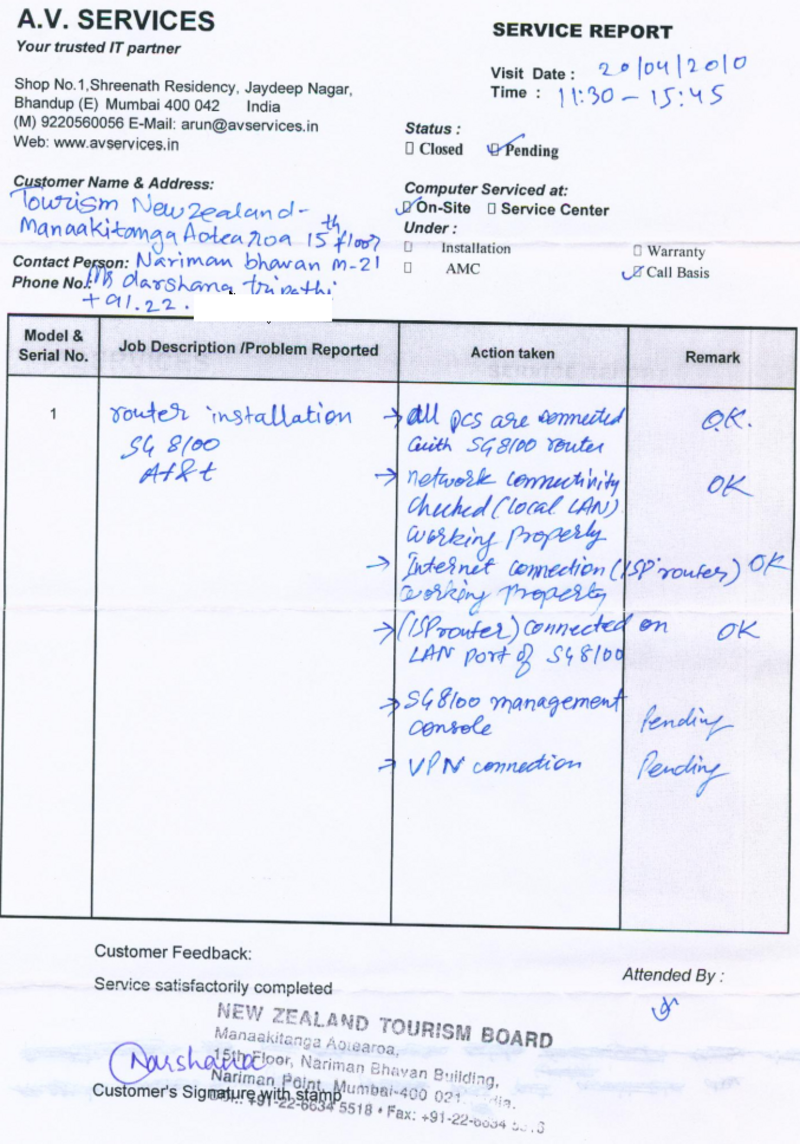 A.V. SERVICES
Your trusted IT partner
Shop No.1,Shreenath Residency, Jaydeep Nagar,
Bhandup (E) Mumbai 400 042 India
(M) 9220560056 E-Mail: arun@avservices.in
Web: www.avservices.in
SERVICE REPORT
Visit Date : 20/04/2010
Time : 11:30 - 15:45
Status :
Closed Pending
Customer Name & Address:
Tourism Newzealand-
Manaakitanga Aotearoa 15th floor
Contact Person: Nariman bhavan M-21
Phone No.: Ms darshana tripathi
+91.22.
Computer Serviced at:
On-Site Service Center
Under :
Installation Warranty
AMC Call Basis
Model &
Serial No.
Job Description /Problem Reported
Action taken
Remark
1
router installation
SG 8100
At&t
→ all pcs are connected OK.
with SG8100 router
→ network connectivity OK
checked (local LAN)
working properly
→ Internet connection (ISP router) OK
working properly
→ (ISP router) connected on OK
LAN port of SG8100
→ SG8100 management Pending
console
→ VPN connection Pending
Customer Feedback:
Service satisfactorily completed
Attended By :
NEW ZEALAND TOURISM BOARD
Manaakitanga Aotearoa,
15th Floor, Nariman Bhavan Building,
Nariman Point, Mumbai-400 021
+91-22-6634 5518 • Fax: +91-22-6634
Darshana
Customer's Signature with stamp